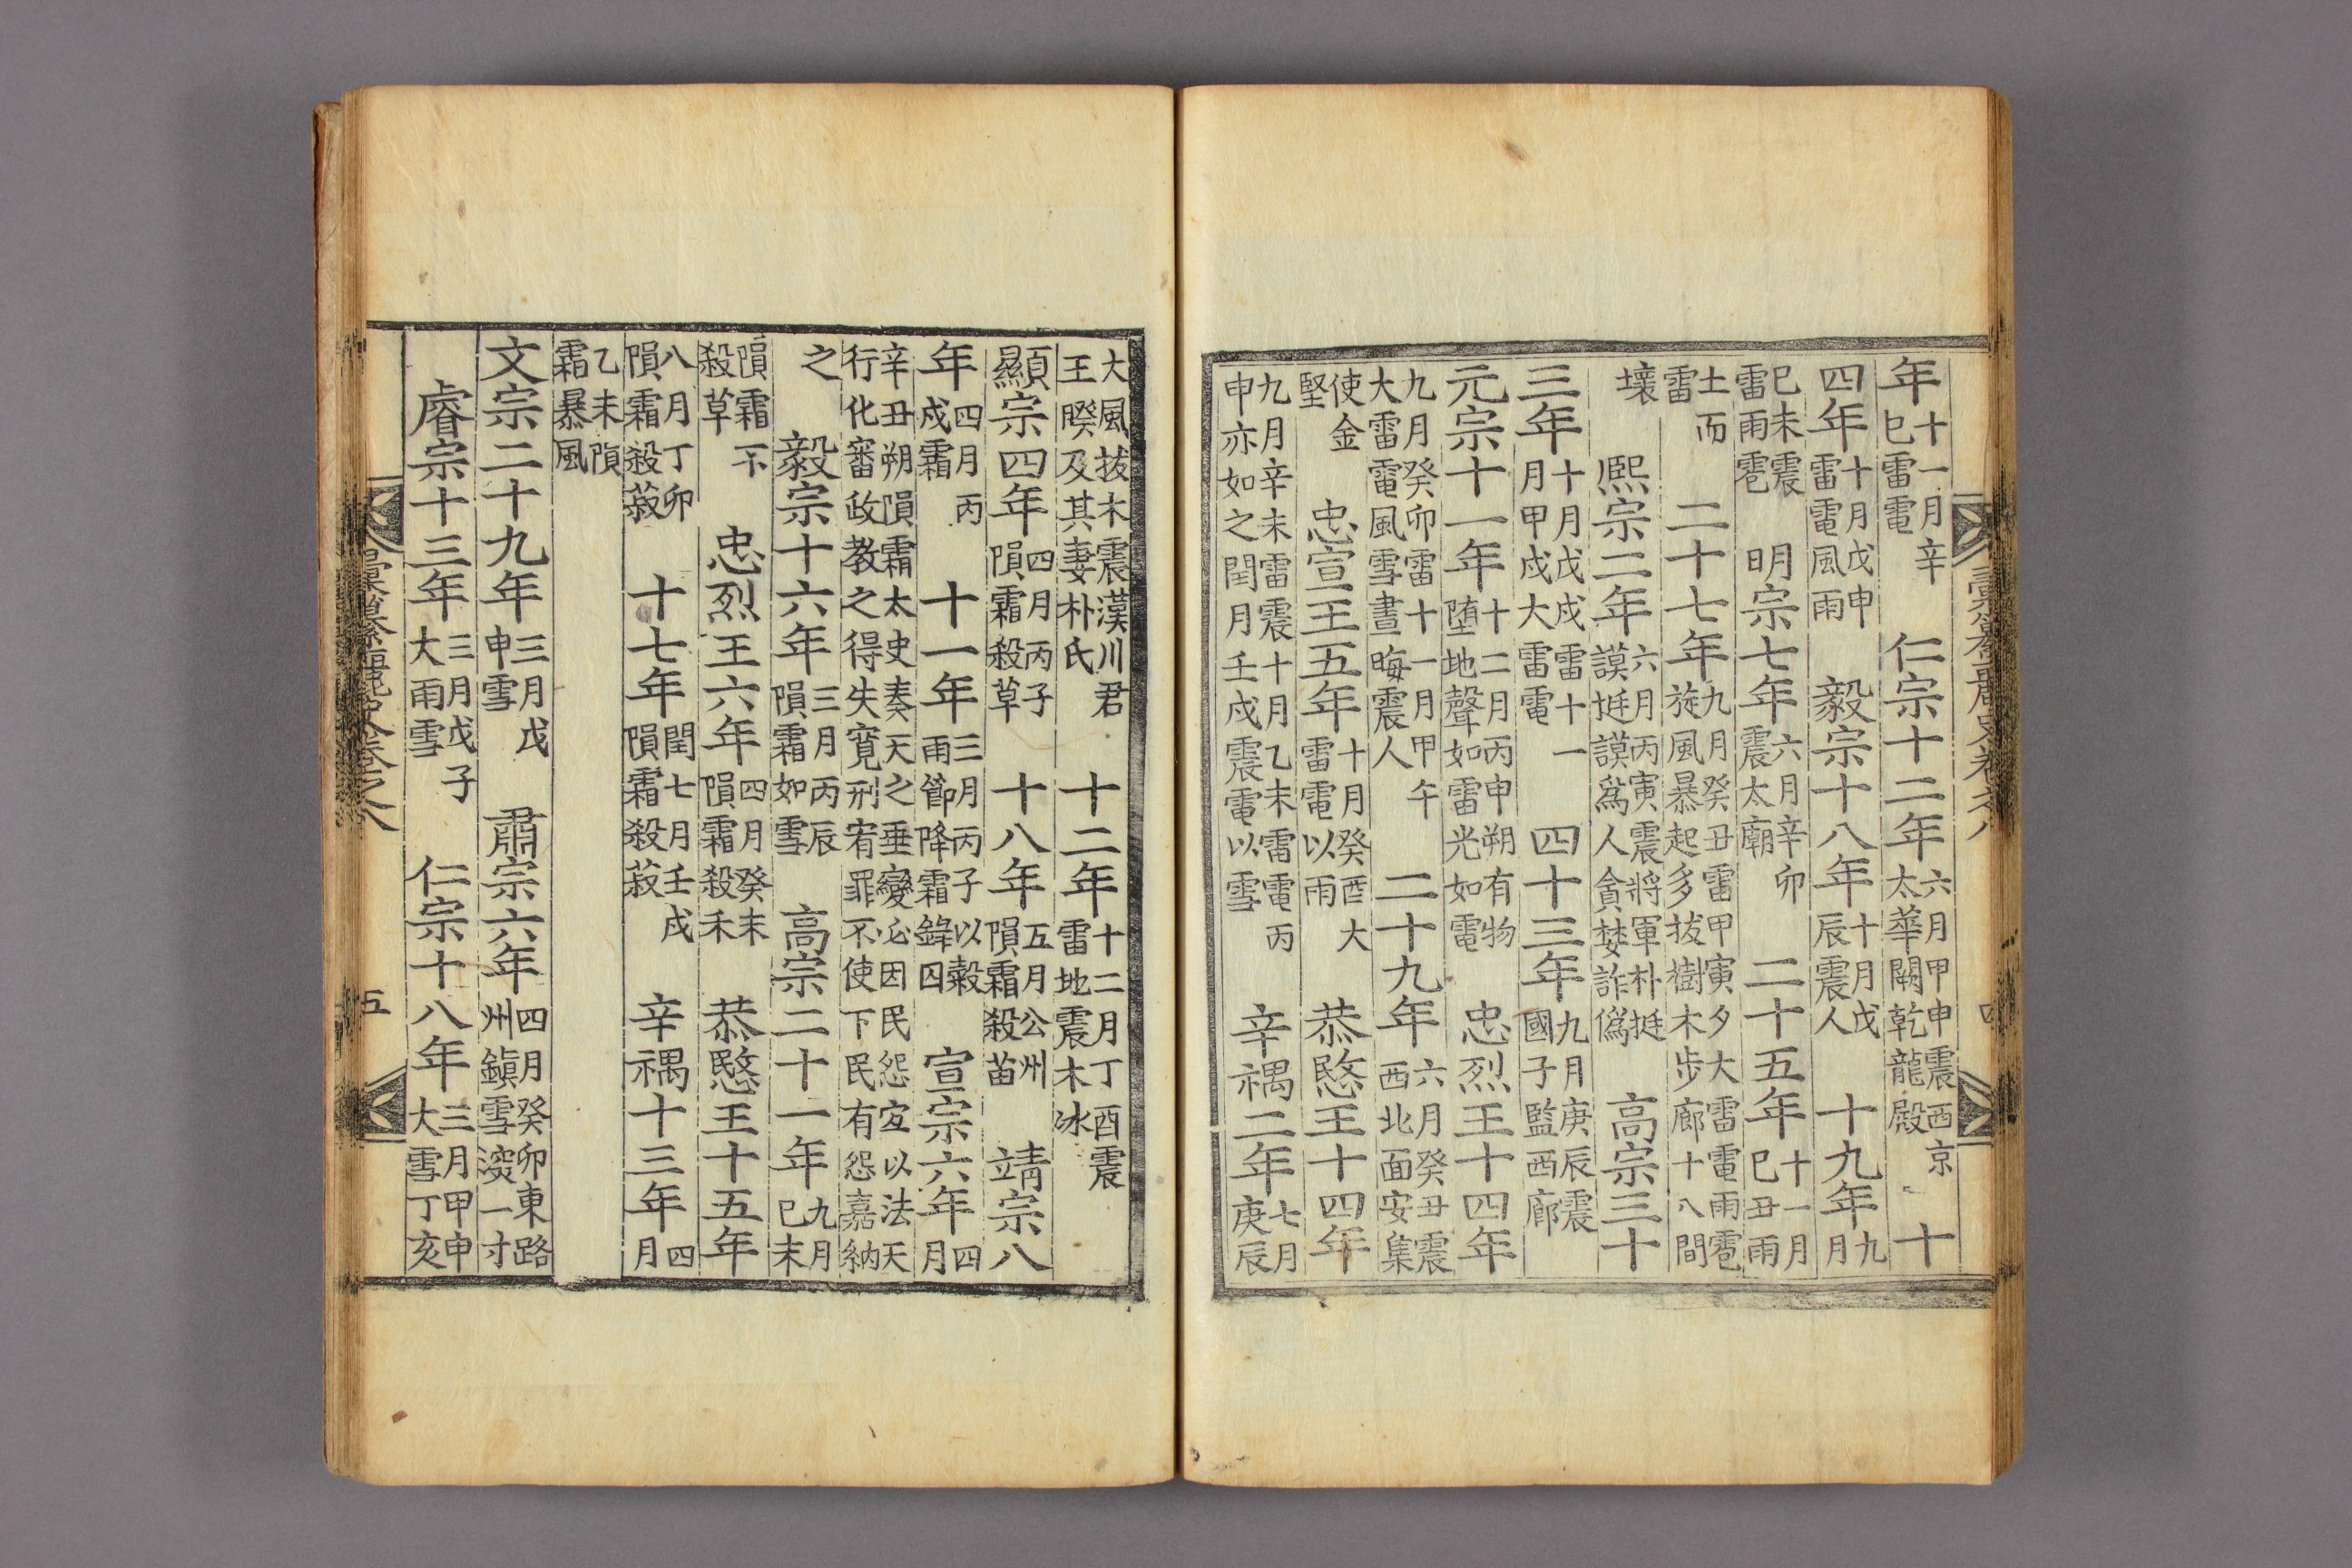 彙纂麗史卷之八 四
年十一月辛巳雷電 仁宗十二年六月甲申震西京太華闕乾龍殿 十
四年十月戊申雷電風雨 毅宗十八年十月戊辰震人 十九年九月
巳未震雷雨雹 明宗七年六月辛卯震太廟 二十五年十一月巳丑雨
土而雷 二十七年九月癸丑雷甲寅夕大雷電雨雹旋風暴起多拔樹木步廊十八間
壞 熙宗二年六月丙寅震將軍朴挺謨挺謨爲人貪婪詐僞 高宗三十
三年十月戊戌雷十一月甲戌大雷電 四十三年九月庚辰震國子監西廊
元宗十一年十二月丙申朔有物堕地聲如雷光如電 忠烈王十四年
九月癸卯雷十一月甲午大雷電風雪晝晦震人 二十九年六月癸丑震西北面安集
使金堅 忠宣王五年十月癸酉大雷電以雨 恭愍王十四年
九月辛未雷震十月乙未雷電丙申亦如之閏月壬戌震電以雪 辛禑二年七月庚辰
大風拔木震漢川君王睽及其妻朴氏 十二年十二月丁酉震雷地震木冰
顯宗四年四月丙子隕霜殺草 十八年五月公州隕霜殺苗 靖宗八
年四月丙戌霜 十一年三月丙子以穀雨節降霜錄囚 宣宗六年四月
辛丑朔隕霜太史奏天之垂變必因民怨宜以法天行化審政教之得失寬刑宥罪不使下民有怨嘉納
之 毅宗十六年三月丙辰隕霜如雪 高宗二十一年九月巳未
隕霜不殺草 忠烈王六年四月癸未隕霜殺禾 恭愍王十五年
八月丁卯隕霜殺菽 十七年閏七月壬戌隕霜殺菽 辛禑十三年四月
乙未隕霜暴風
文宗二十九年三月戊申雪 肅宗六年四月癸卯東路州鎭雪深一寸
睿宗十三年三月戊子大雨雪 仁宗十八年三月甲申大雪丁亥
彙纂麗史卷之八 五